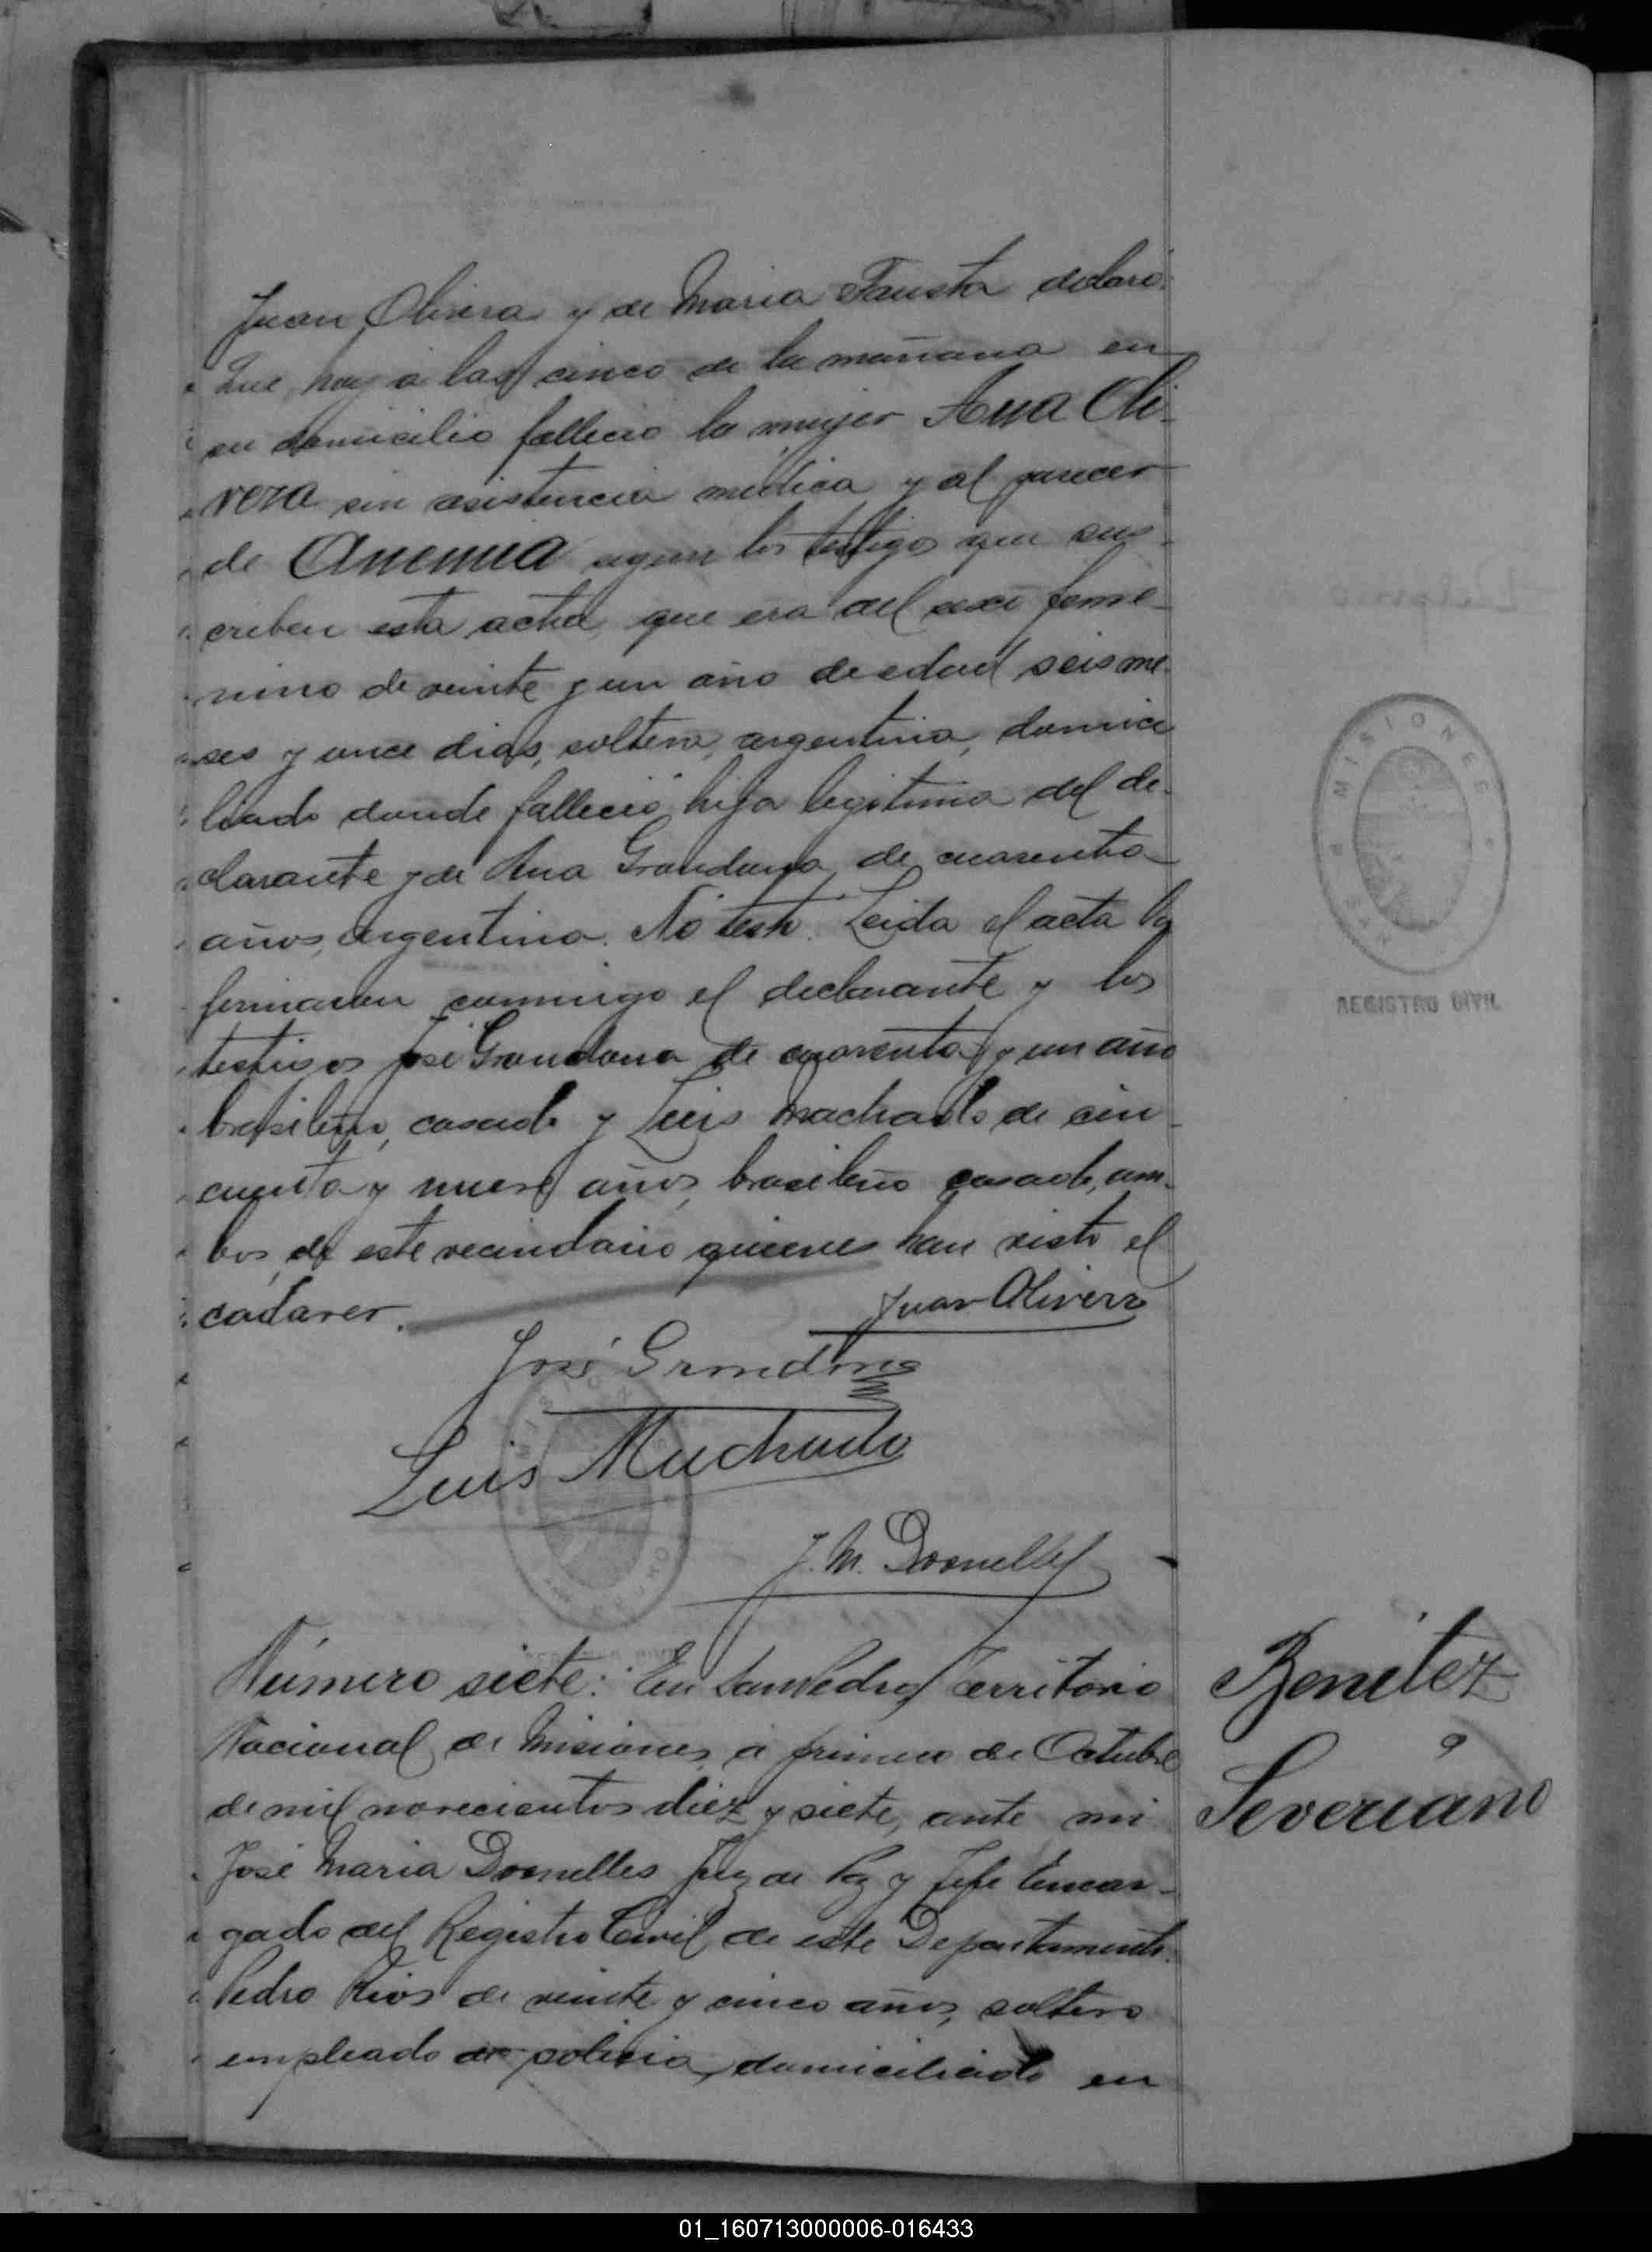 Juan Olivera y de Maria Fausta declaró:
Que, hoy a las cinco de la mañana en
su domicilio fallecio la mujer Ana Oli-
vera sin asistencia medica y al parecer
de Anemia segun los testigos que sus-
criben esta acta, que era del sexo feme-
nino de veinte y un año de edad seis me-
ses y once dias, soltera, argentina, domici
liada donde fallecio, hija legitima del de-
clarante y de Ana Grondona, de cuarenta
años, argentina. No testó. Leida el acta la
firmaron conmigo el declarante y los
testigos José Grondona de cuarenta y un año
brasileño, casado y Luis Machado de cin-
cuenta y nueve años, brasileño casado, am-
bos de este vecindario quienes han visto el
cadaver.
Juan Olivera
José Grondona
Luis Machado
J. M. Dornelles
Número siete: En San Pedro, Territorio
Nacional de Misiones, a primero de Octubre
de mil novecientos diez y siete, ante mi
José Maria Dornelles Juez de Paz y Jefe Encar-
gado del Registro Civil de este Departamento.
Pedro Rios de veinte y cinco años, soltero
empleado de policia, domiciliado en
MISIONES
REGISTRO CIVIL
Benitez
Severiano
01_160713000006-016433